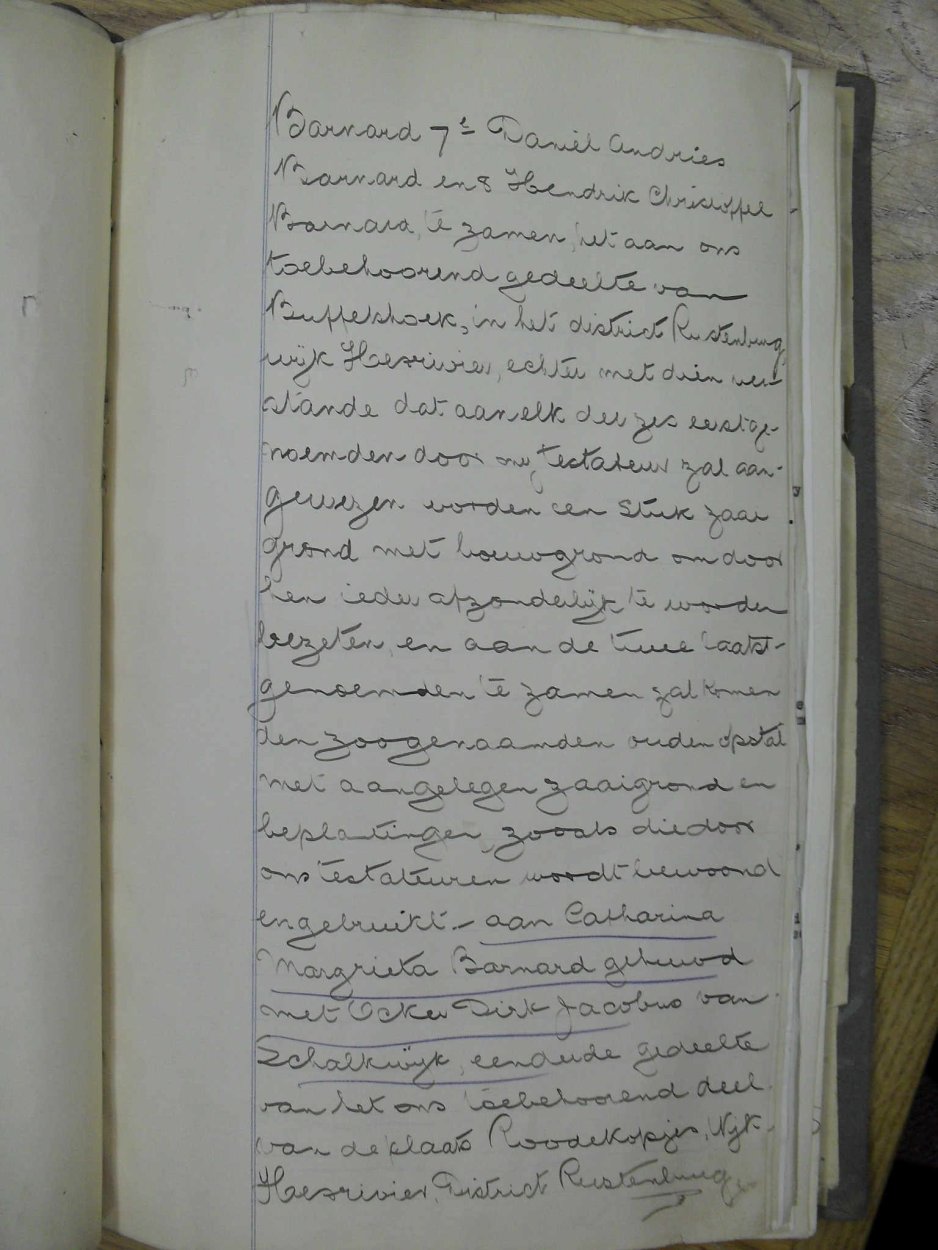 Barnard 7e Daniel Andries
Barnard en 8 Hendrik Christoffel
Barnard, te zamen, het aan ons
toebehoorend gedeelte van
Buffelshoek, in het district Rustenburg
wijk Hexrivier, echter met dien ver-
stande dat aan elk der zes eerstge-
noemden door my testateur zal aan-
gewezen worden een stuk zaai
grond met bouwgrond om door
hen ieder afzonderlijk te worden
bezeten, en aan de twee laatst-
genoemden te zamen zal komen
den zoogenaamden ouden opstal
met aangelegen zaaigrond en
beplantingen, zooals die door
ons testateuren wordt bewoond
en gebruikt.- aan Catharina
Margrieta Barnard gehuwd
met Ocker Dirk Jacobus van
Schalkwijk, een derde gedeelte
van het ons toebehoorend deel
van de plaats Roodekopjes, Wijk
Hexrivier, District Rustenburg